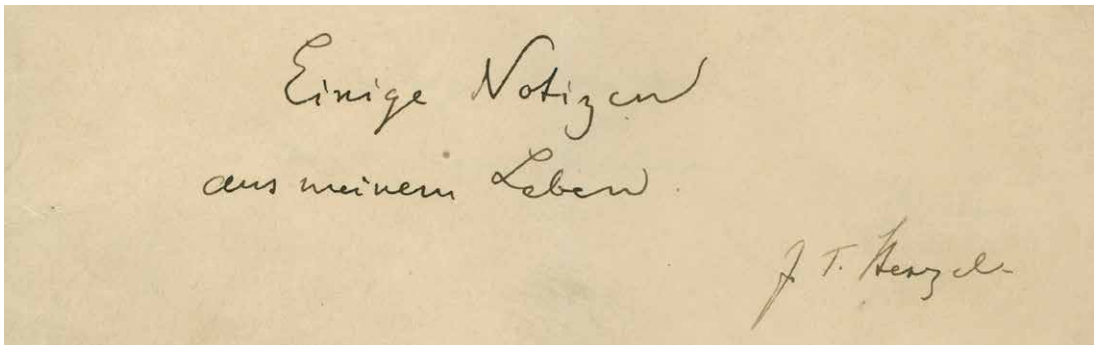 Einige Notizen
aus meinem Leben
J. T.